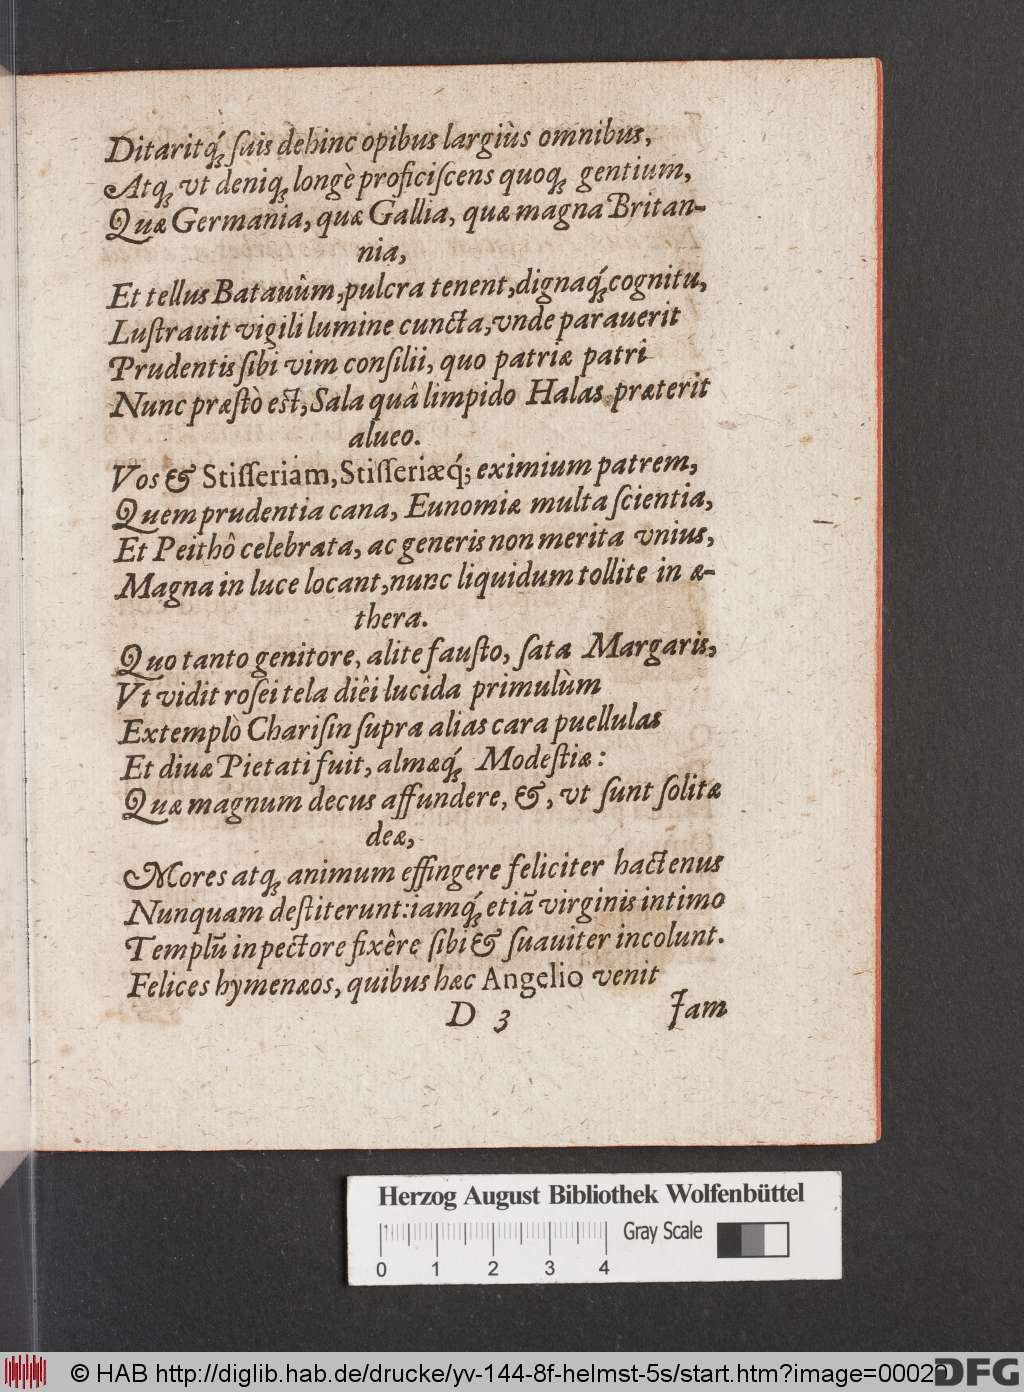 Ditaritq́; ſuis dehinc opibus largiùs omnibus,
Atq; vt deniq; longè proficiſcens quoq; gentium,
Quæ Germania, quæ Gallia, quæ magna Britan-
nia,
Et tellus Batauûm, pulcra tenent, dignaq́; cognitu,
Luſtrauit vigili lumine cuncta, vnde parauerit
Prudentis ſibi vim conſilii, quo patriæ patri
Nunc præſtò eſt, Sala quâ limpido Halas præterit
alueo.
Vos & Stiſſeriam, Stiſſeriæq́; eximium patrem,
Quem prudentia cana, Eunomiæ multa ſcientia,
Et Peithô celebrata, ac generis non merita vnius,
Magna in luce locant, nunc liquidum tollite in æ-
thera.
Quo tanto genitore, alite fauſto, ſata Margaris,
Vt vidit roſei tela diêi lucida primulùm
Extemplò Chariſin ſupra alias cara puellulas
Et diuæ Pietati fuit, almæq́; Modeſtiæ:
Quæ magnum decus affundere, &, vt ſunt ſolitæ
deæ,
Mores atq; animum effingere feliciter hactenus
Nunquam deſtiterunt: iamq́; etiā virginis intimo
Templū in pectore fixêre ſibi & ſuauiter incolunt.
Felices hymenæos, quibus hæc Angelio venit
D 3 Jam
Herzog August Bibliothek Wolfenbüttel
Gray Scale
0 1 2 3 4
© HAB http://diglib.hab.de/drucke/yv-144-8f-helmst-5s/start.htm?image=00029 DFG